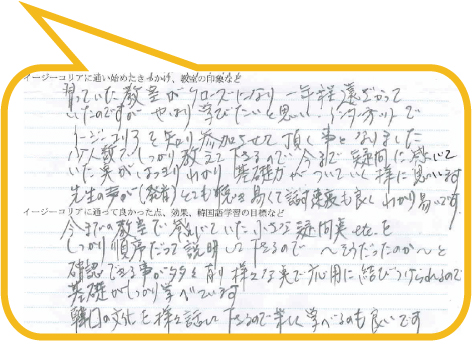 イージーコリアに通い始めたきっかけ、教室の印象など
習っていた教室がクローズになり 一年程遠ざかって
いたのですが やはり学びたいと思い インターネットで
イージーコリアを知り 参加させて頂く事となりました
少人数でしっかり教えて下さるので 今まで疑問に感じて
いた点がはっきりわかり 基礎力がついていく様に思います
先生の声が(発音)とても聴き易くて 話す速度も良く わかり易いです
イージーコリアに通って良かった点、効果、韓国語学習の目標など
今までの教室で感じていた 小さな疑問点etcを
しっかり順序だって説明して下さるので 〜そうだったのか〜と
確認できる事が多々有り 様々な点で応用に結びつけられるので
基礎がしっかり学べています
韓国の文化も様々話して下さるので楽しく学べるのも良いです